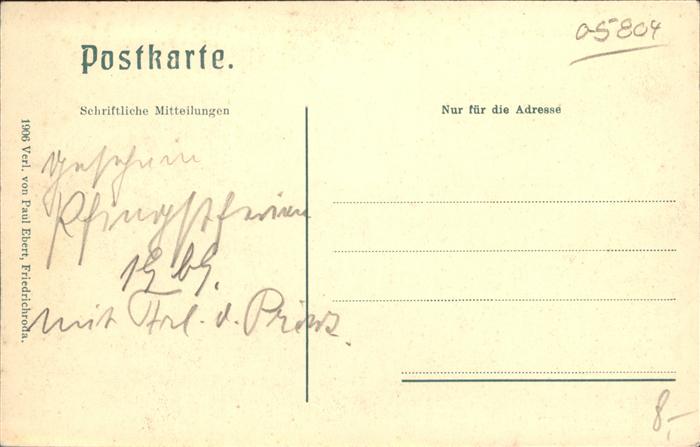 05804
Postkarte.
Schriftliche Mitteilungen
Nur für die Adresse
1906 Verl. von Paul Ebert, Friedrichroda.
Pfingstferien
mit Frl. v.
8,-